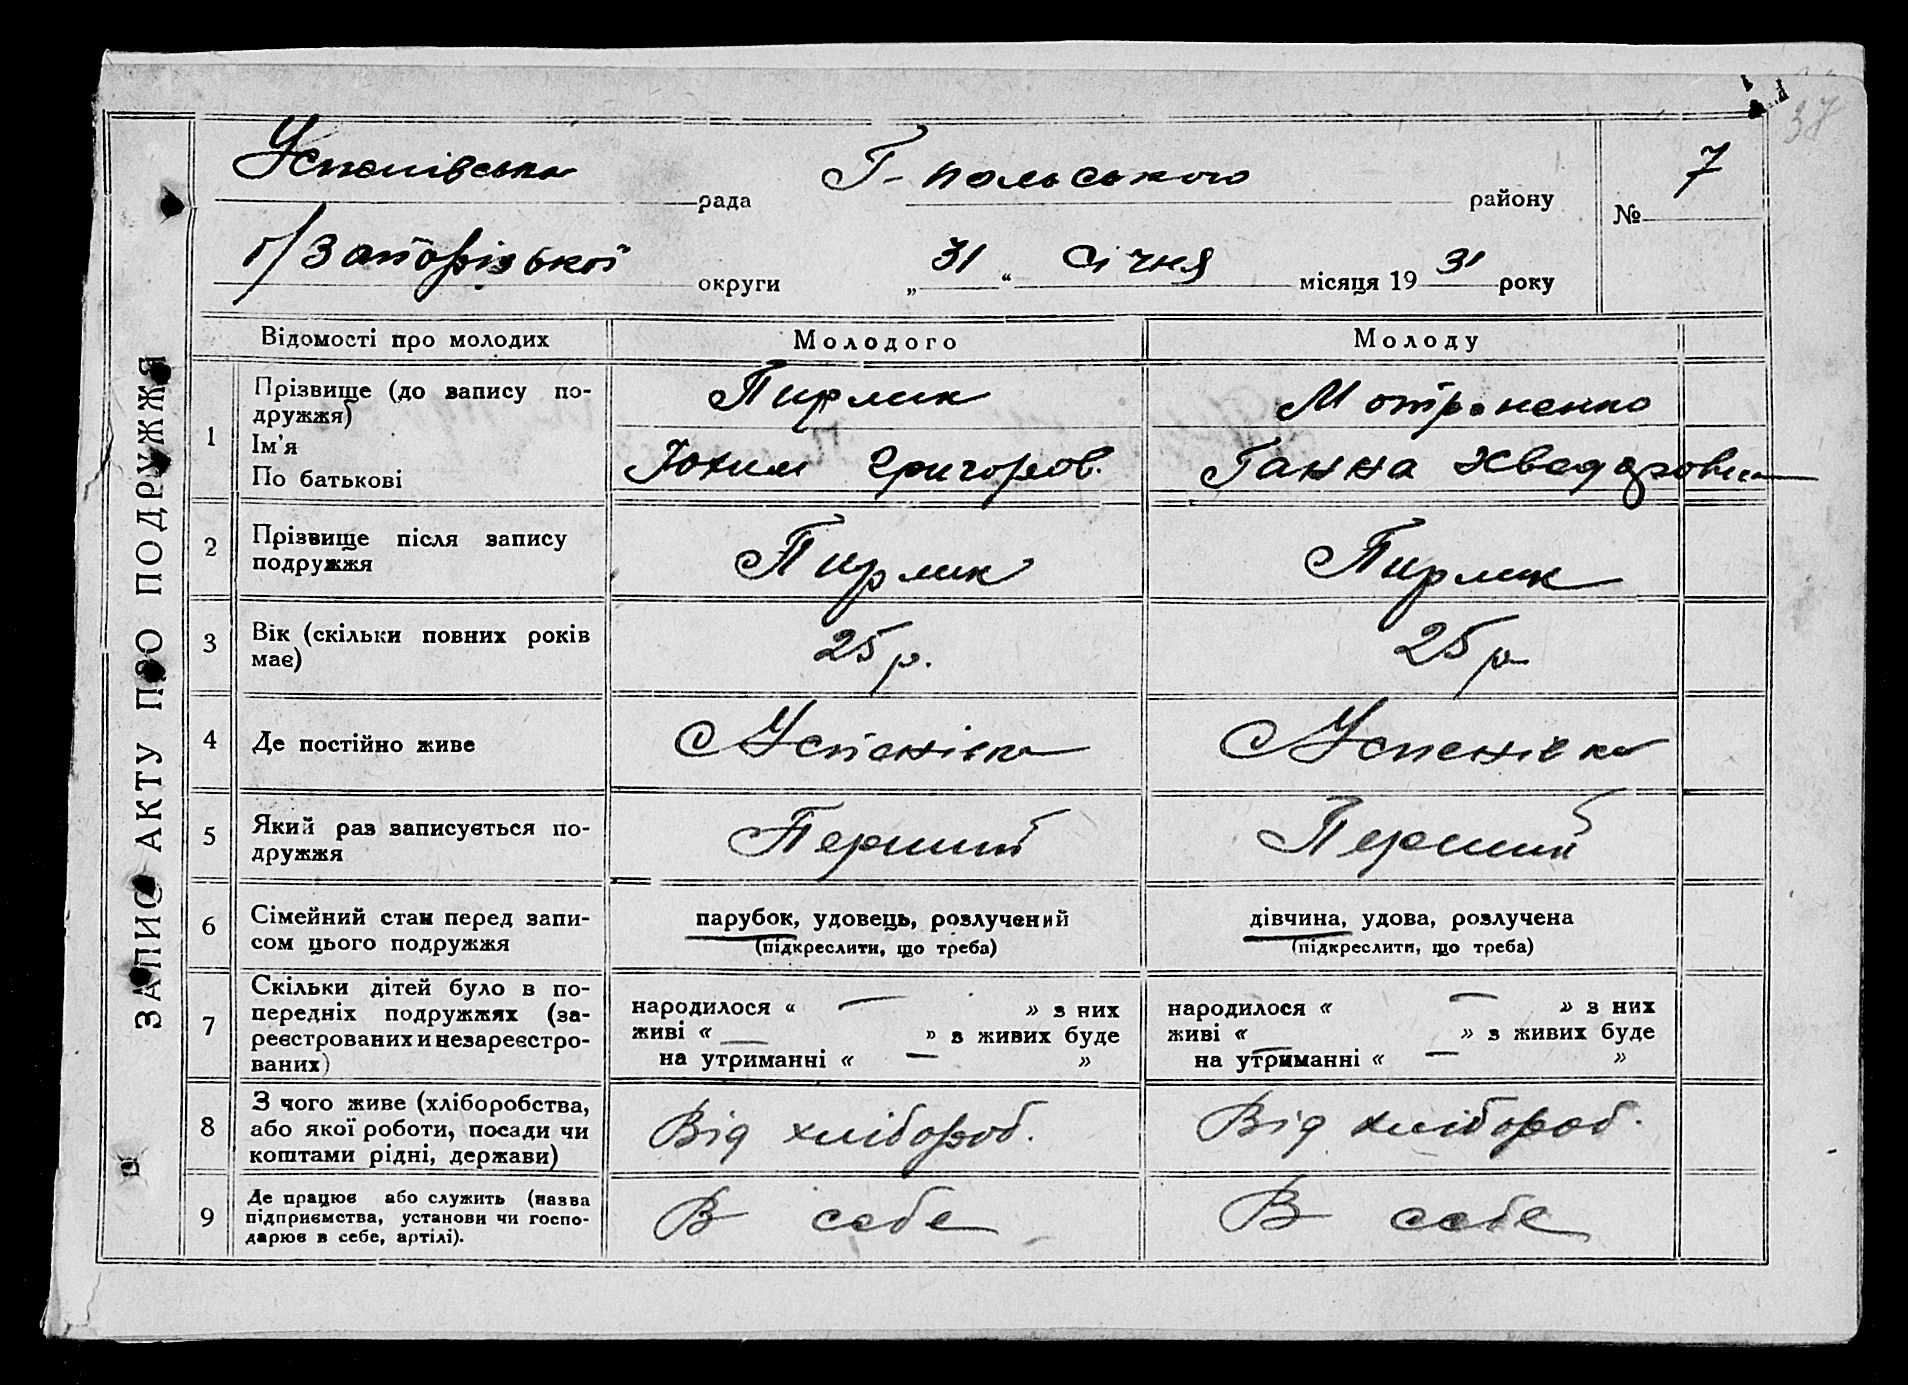 37
Успенівська рада Г-польського району № 7
б/Запорізької округи „31“ Січня місяця 1931 року
ЗАПИС АКТУ ПРО ПОДРУЖЖЯ
Відомості про молодих Молодого Молоду
1 Прізвище (до запису по-
дружжя) Пирлик Мотроненко
Ім'я
По батькові Юхим Григоров. Ганна Хведоровна
2 Прізвище після запису
подружжя Пирлик Пирлик
3 Вік (скільки повних років
має) 25 р. 25 р.
4 Де постійно живе Успенівка Успенівка
5 Який раз записується по-
дружжя Перший Перший
6 Сімейний стан перед запи-
сом цього подружжя
парубок, удовець, розлучений
(підкреслити, що треба)
дівчина, удова, розлучена
(підкреслити, що треба)
7 Скільки дітей було в по-
передніх подружжях (за-
реєстрованих и незареєстро-
ваних)
народилося « — » з них
живі « — » з живих буде
на утриманні « — »
народилося « — » з них
живі « — » з живих буде
на утриманні « — »
8 З чого живе (хліборобства,
або якої роботи, посади чи
коштами рідні, держави)
Від хлібороб.
Від хлібороб.
9 Де працює або служить (назва
підприємства, установи чи госпо-
дарює в себе, артілі).
В себе
В себе